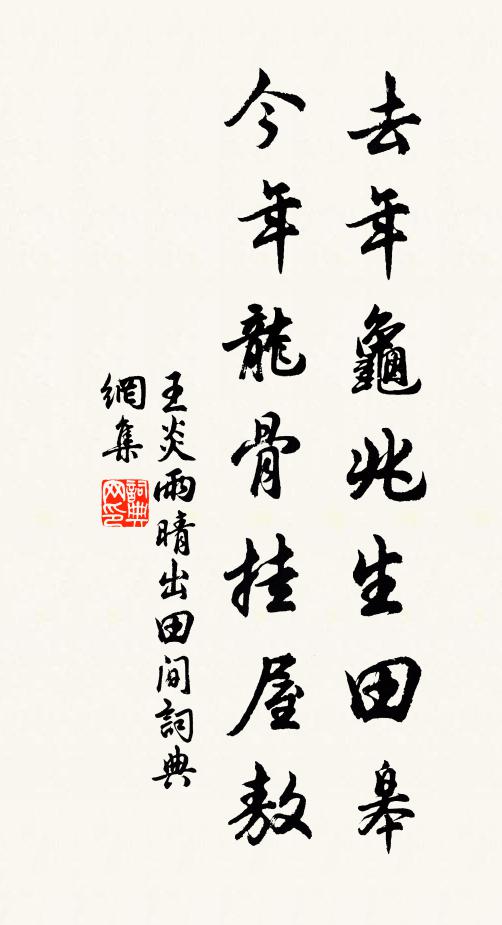 去年龜兆生田皋
今年龍骨挂屋敖
王炎雨晴出田间詞典
網集
詞典網印